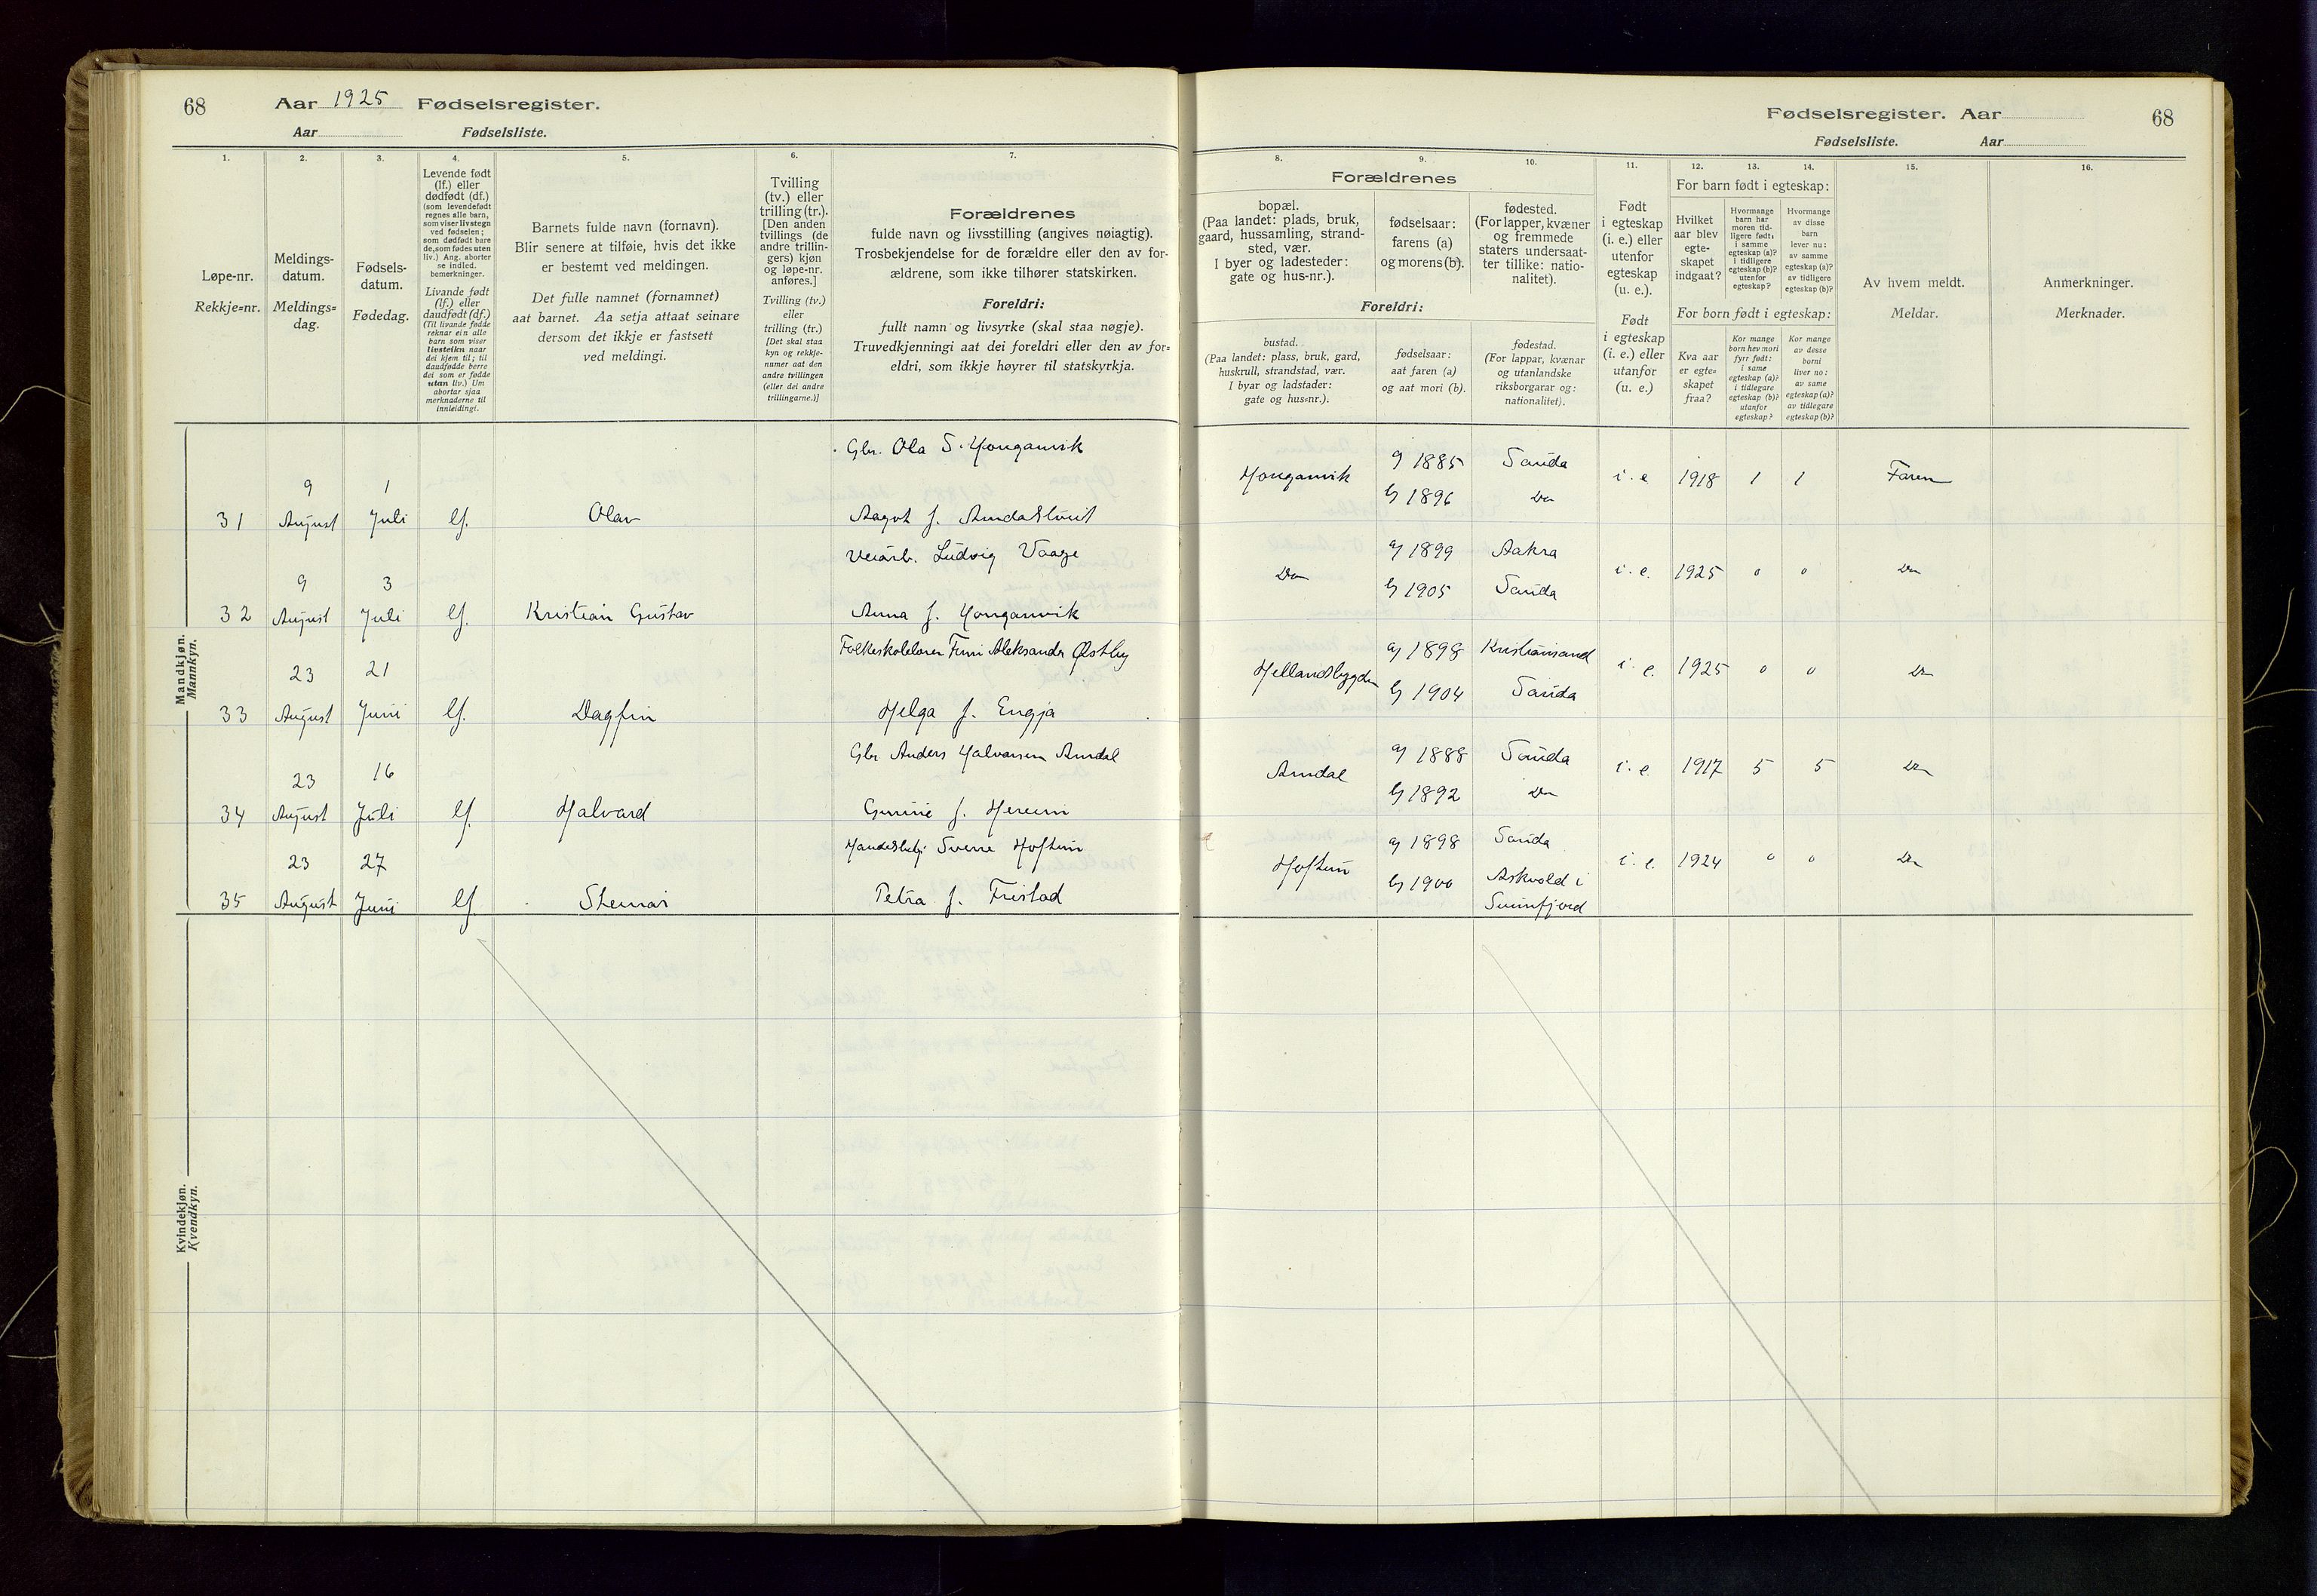 68 Aar 1925 Fødselsregister.
Aar Fødselsliste.
1. 2. 3. 4. 5. 6. 7.
Løpe-nr.
Rekkje=nr.
Meldings-
datum.
Meldings=
dag.
Fødsels-
datum.
Fødedag.
Levende født
(lf.) eller
dødfødt (df.)
(som levendefødt
regnes alle barn,
som viser livstegn
ved fødselen;
som dødfødt bare
de, som fødes uten
liv.) Ang. aborter
se indled.
bemerkninger.
Livande født
(lf.) eller
daudfødt (df.)
(Til livande fødde
reknar ein alle
barn som viser
livsteikn naar
dei kjem til; til
daudfødde berre
dei som er fødde
utan liv.) Um
abortar sjaa
merknaderne til
innleidingi.
Barnets fulde navn (fornavn).
Blir senere at tilføie, hvis det ikke
er bestemt ved meldingen.
Det fulle namnet (fornamnet)
aat barnet. Aa setja attaat seinare
dersom det ikkje er fastsett
ved meldingi.
Tvilling
(tv.) eller
trilling (tr.).
[Den anden
tvillings (de
andre trillin-
gers) kjøn
og løpe-nr.
anføres.]
Tvilling (tv.)
eller
trilling (tr.)
[Det skal staa
kyn og rekkje-
numer aat den
andre tvillingen
(eller dei andre
trillingarne.)]
Forældrenes
fulde navn og livsstilling (angives nøiagtig).
Trosbekjendelse for de forældre eller den av for-
ældrene, som ikke tilhører statskirken.
Foreldri:
fullt namn og livsyrke (skal staa nøgje).
Truvedkjenningi aat dei foreldri eller den av for=
eldri, som ikkje høyrer til statskyrkja.
Mandkjøn.
Mannkyn.
Gbr. Ola S. Honganvik
9 1
31 August Juli lf. Olav Aagot f.
Veiarb. Ludvig Vaage
9 3
32 August Juli lf. Kristian Gustav Anna f. Honganvik
Folkeskolelærer Finn Aleksander Østby
23 21
33 August Juni lf. Dagfin Helga f. Engja
Gbr Anders Halvorsen Amdal
23 16
34 August Juli lf. Halvard Gunne f. Hereim
Sverre Hoftun
23 27
35 August Juni lf. Steinar Petra f. Fristad
Kvindekjøn.
Kvendkyn.
Fødselsregister. Aar 68
Fødselsliste. Aar
8. 9. 10. 11. 12. 13. 14. 15. 16.
Forældrenes
bopæl.
(Paa landet: plads, bruk,
gaard, hussamling, strand-
sted, vær.
I byer og ladesteder:
gate og hus-nr.).
fødselsaar:
farens (a)
og morens (b).
fødested.
(For lapper, kvæner
og fremmede
staters undersaat-
ter tillike: natio-
nalitet).
Foreldri:
bustad.
(Paa landet: plass, bruk, gard,
huskrull, strandstad, vær.
I byar og ladstader:
gate og hus=nr.).
fødselsaar:
aat faren (a)
og aat mori (b).
fødestad.
(For lappar, kvænar
og utanlandske
riksborgarar og:
nationalitet).
Født
i egteskap
(i. e.) eller
utenfor
egteskap
(u. e.).
Født
i egteskap
(i. e.) eller
utanfor
(u. e.)
For barn født i egteskap:
Hvilket
aar blev
egte-
skapet
indgaat?
Hvormange
barn har
moren tid-
ligere født:
i samme
egteskap (a)?
i tidligere
egteskap (b)?
utenfor
egteskap?
Hvormange
av disse
barn
lever nu:
av samme
egteskap (a)?
av tidligere
egteskap (b)?
For born født i egteskap:
Kva aar
er egte=
skapet
fraa?
Kor mange
born hev mori
fyrr født:
i same
egteskap (a)?
i tidlegare
egteskap (b)?
utanfor
egteskap?
Kor mange
av desse
borni
liver no:
av same
egteskap (a)?
av tidlegare
egteskap (b)?
Av hvem meldt.
Meldar.
Anmerkninger.
Merknader.
Honganvik a) 1885 Sauda i. e. 1918 1 1 Faren
b) 1896 Do
Do a) 1899 Aakra i. e. 1925 0 0 Do
b) 1905 Sauda
Hellandsbygden a) 1898 Kristiansand i. e. 1925 0 0 Do
b) 1904 Sauda
Amdal a) 1888 Sauda i. e. 1917 5 5 Do
b) 1892 Do
Hoftun a) 1898 Sauda i. e. 1924 0 0 Do
b) 1900 Askvold i
Sunnfjord